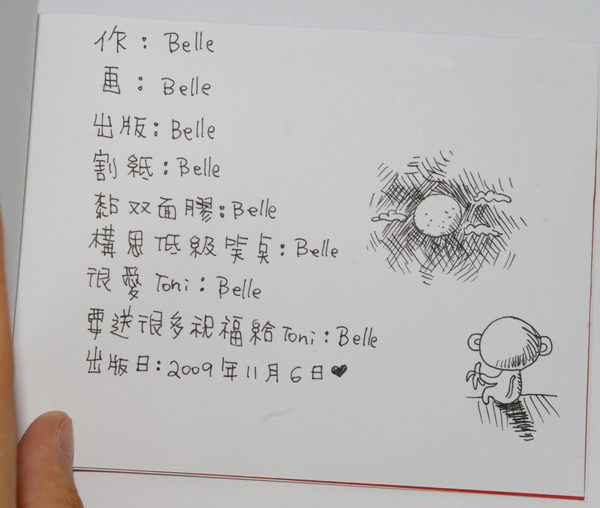 作：Belle
画：Belle
出版：Belle
割紙：Belle
黏双面膠：Belle
構思低級笑点：Belle
很愛Toni：Belle
要送很多祝福給Toni：Belle
出版日：2009年11月6日♥